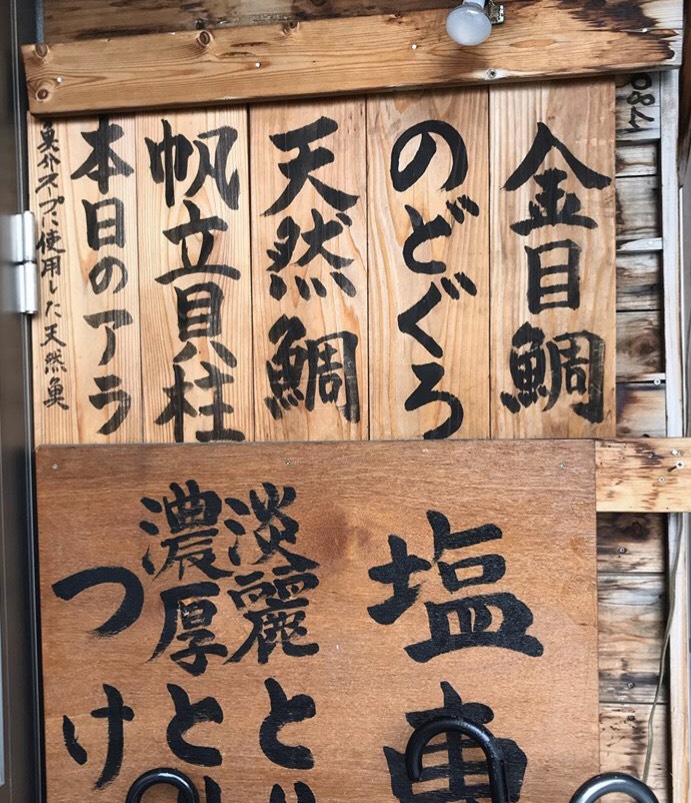 金目鯛
のどぐろ
天然鯛
帆立貝柱
本日のアラ
魚介スープに使用した天然魚
塩専
淡麗と
濃厚とり
つけ